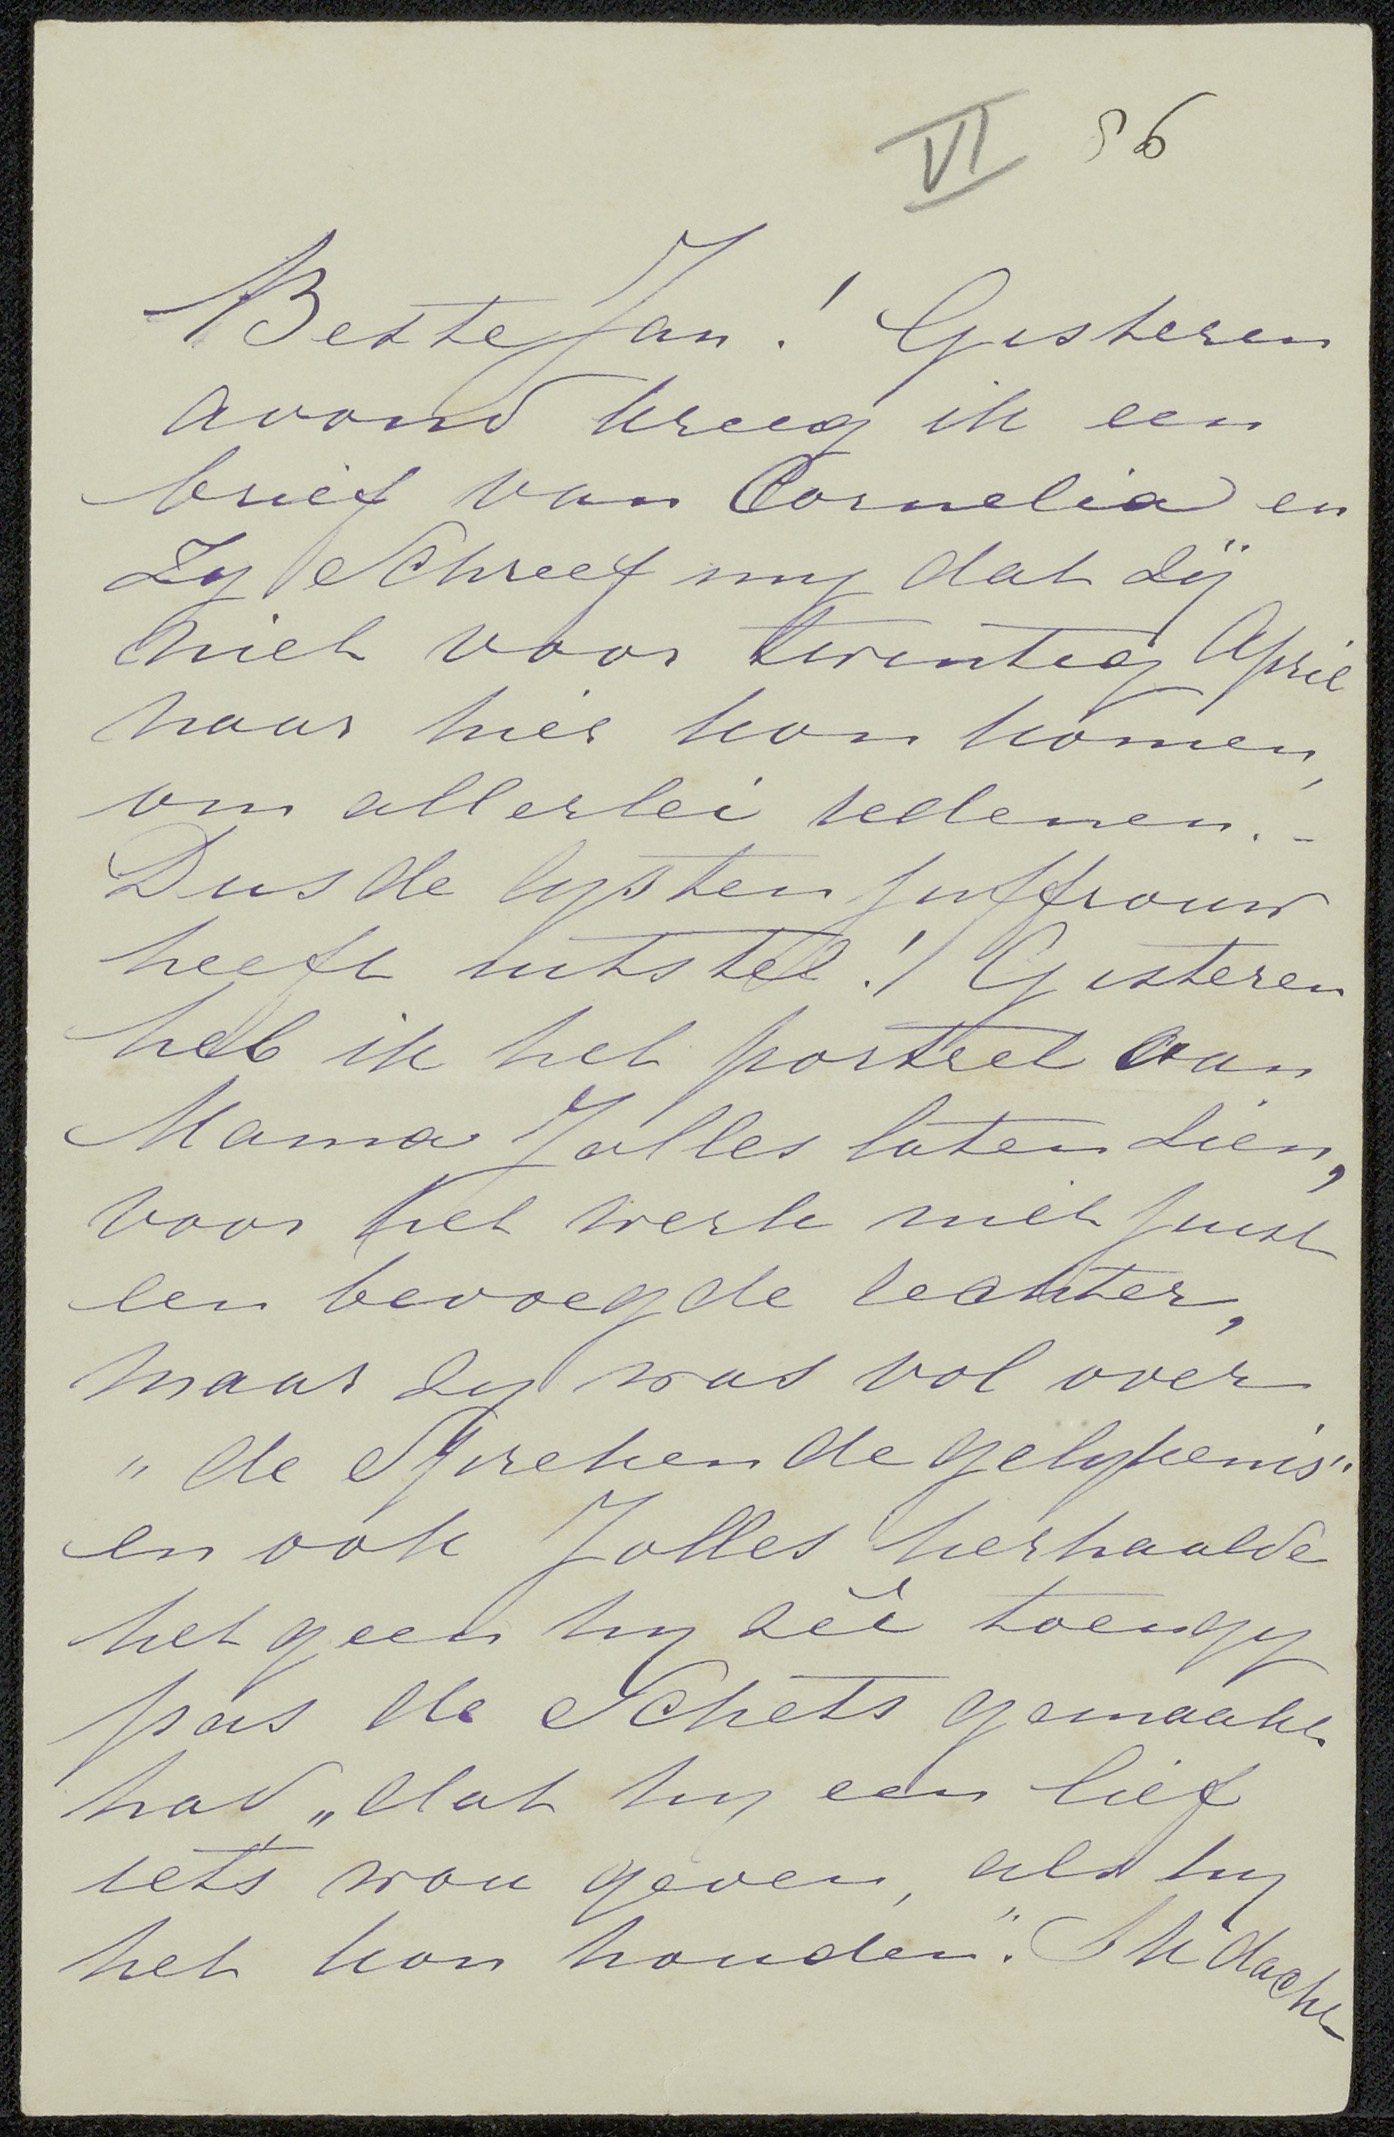 VI 86
Beste Jan! Gisteren
avond kreeg ik een
brief van Cornelia en
zy schreef my dat zÿ
niet voor twintig April
naar hier kon komen,
om allerlei redenen.-
Dus de lysten juffrouw
heeft uitstel! Gisteren
heb ik het portret aan
Mama Jolles laten zien,
voor het werk niet juist
een bevoegde rechter,
maar zy was vol over
„de sprekende gelykenis"
en ook Jolles herhaalde
het geen hy zêi toen gy
pas de schets gemaakt
had „dat hy een lief
iets wou geven, als hy
het kon houden". Ik dacht